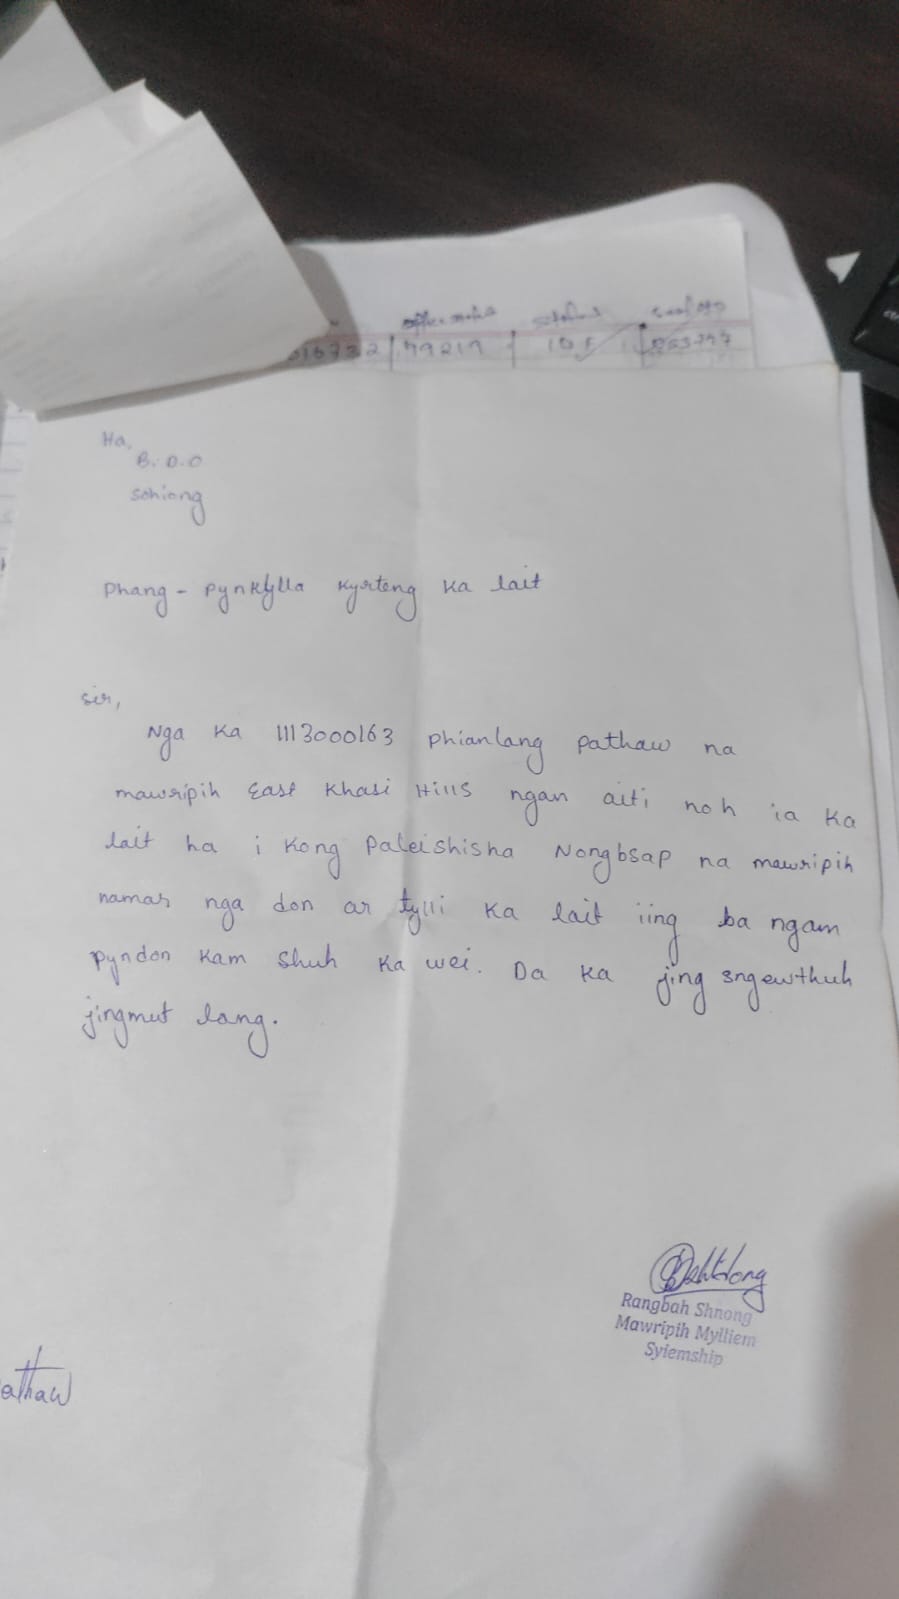 office
016732 79219 105
Ha,
B.D.O
Sohiong
Phang - Pynkylla Kyrteng ka lait
Sir,
Nga ka 1113000163 Phianlang Pathaw na
mawripih East Khasi Hills ngan aiti noh ia ka
lait ha i Kong Paleishisha Nongbsap na mawripih
namar nga don ar tylli ka lait iing ba ngam
pyndon kam shuh ka wei. Da ka jing sngewthuh
jingmut lang.
Rangbah Shnong
Mawripih Mylliem
Syiemship
athaw